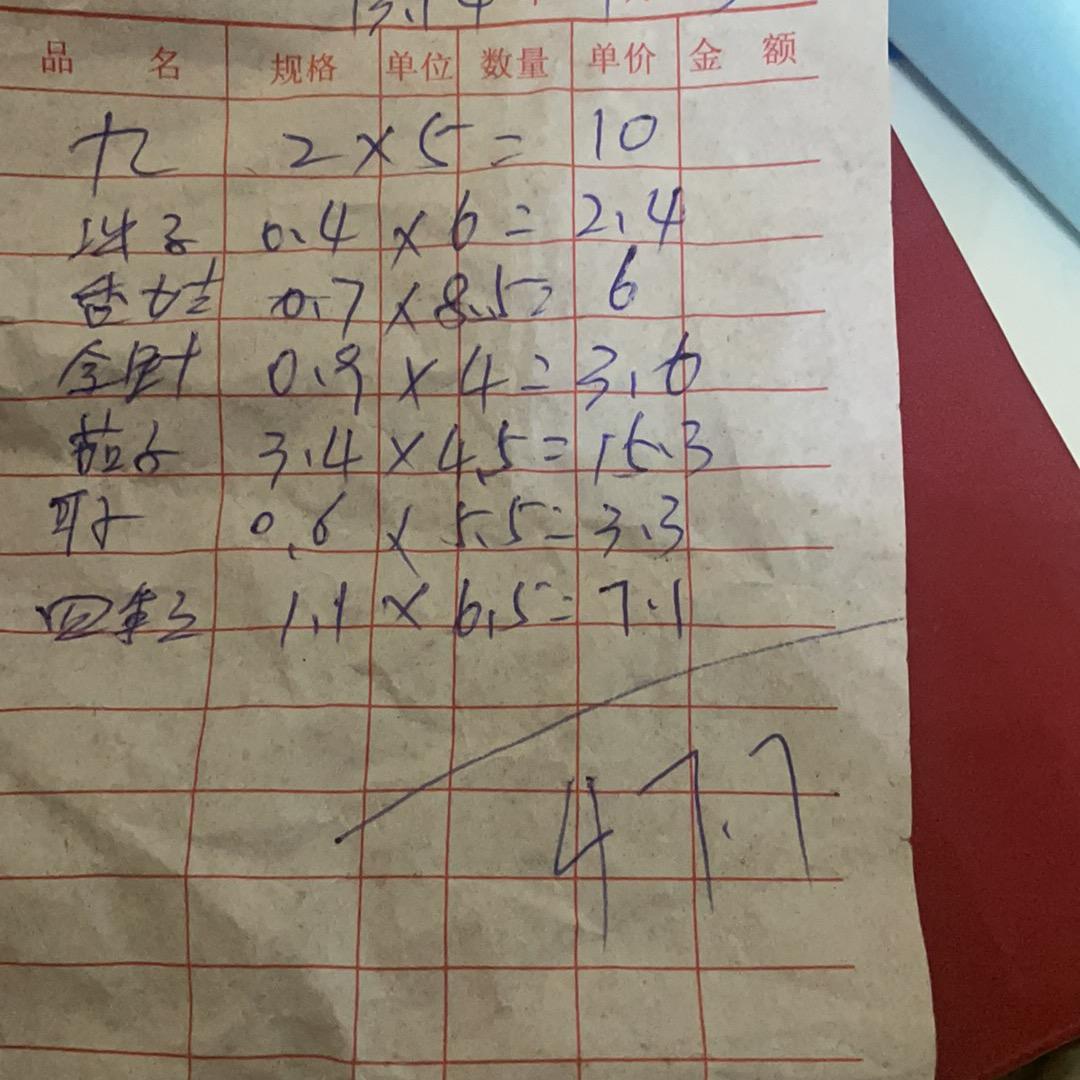 品 名 规格 单位 数量 单价 金 额
2 × 5 = 10
0.4 × 6 = 2.4
0.7 × 8.5 = 6
0.9 × 4 = 3.6
茄子 3.4 × 4.5 = 15.3
0.6 × 5.5 = 3.3
四季豆 1.1 × 6.5 = 7.1
47.7